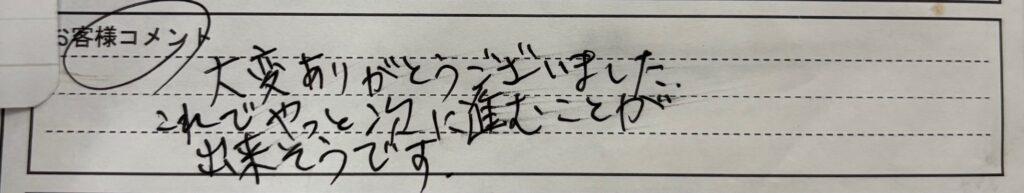 お客様コメント
大変ありがとうございました.
これでやっと次に進むことが
出来そうです.